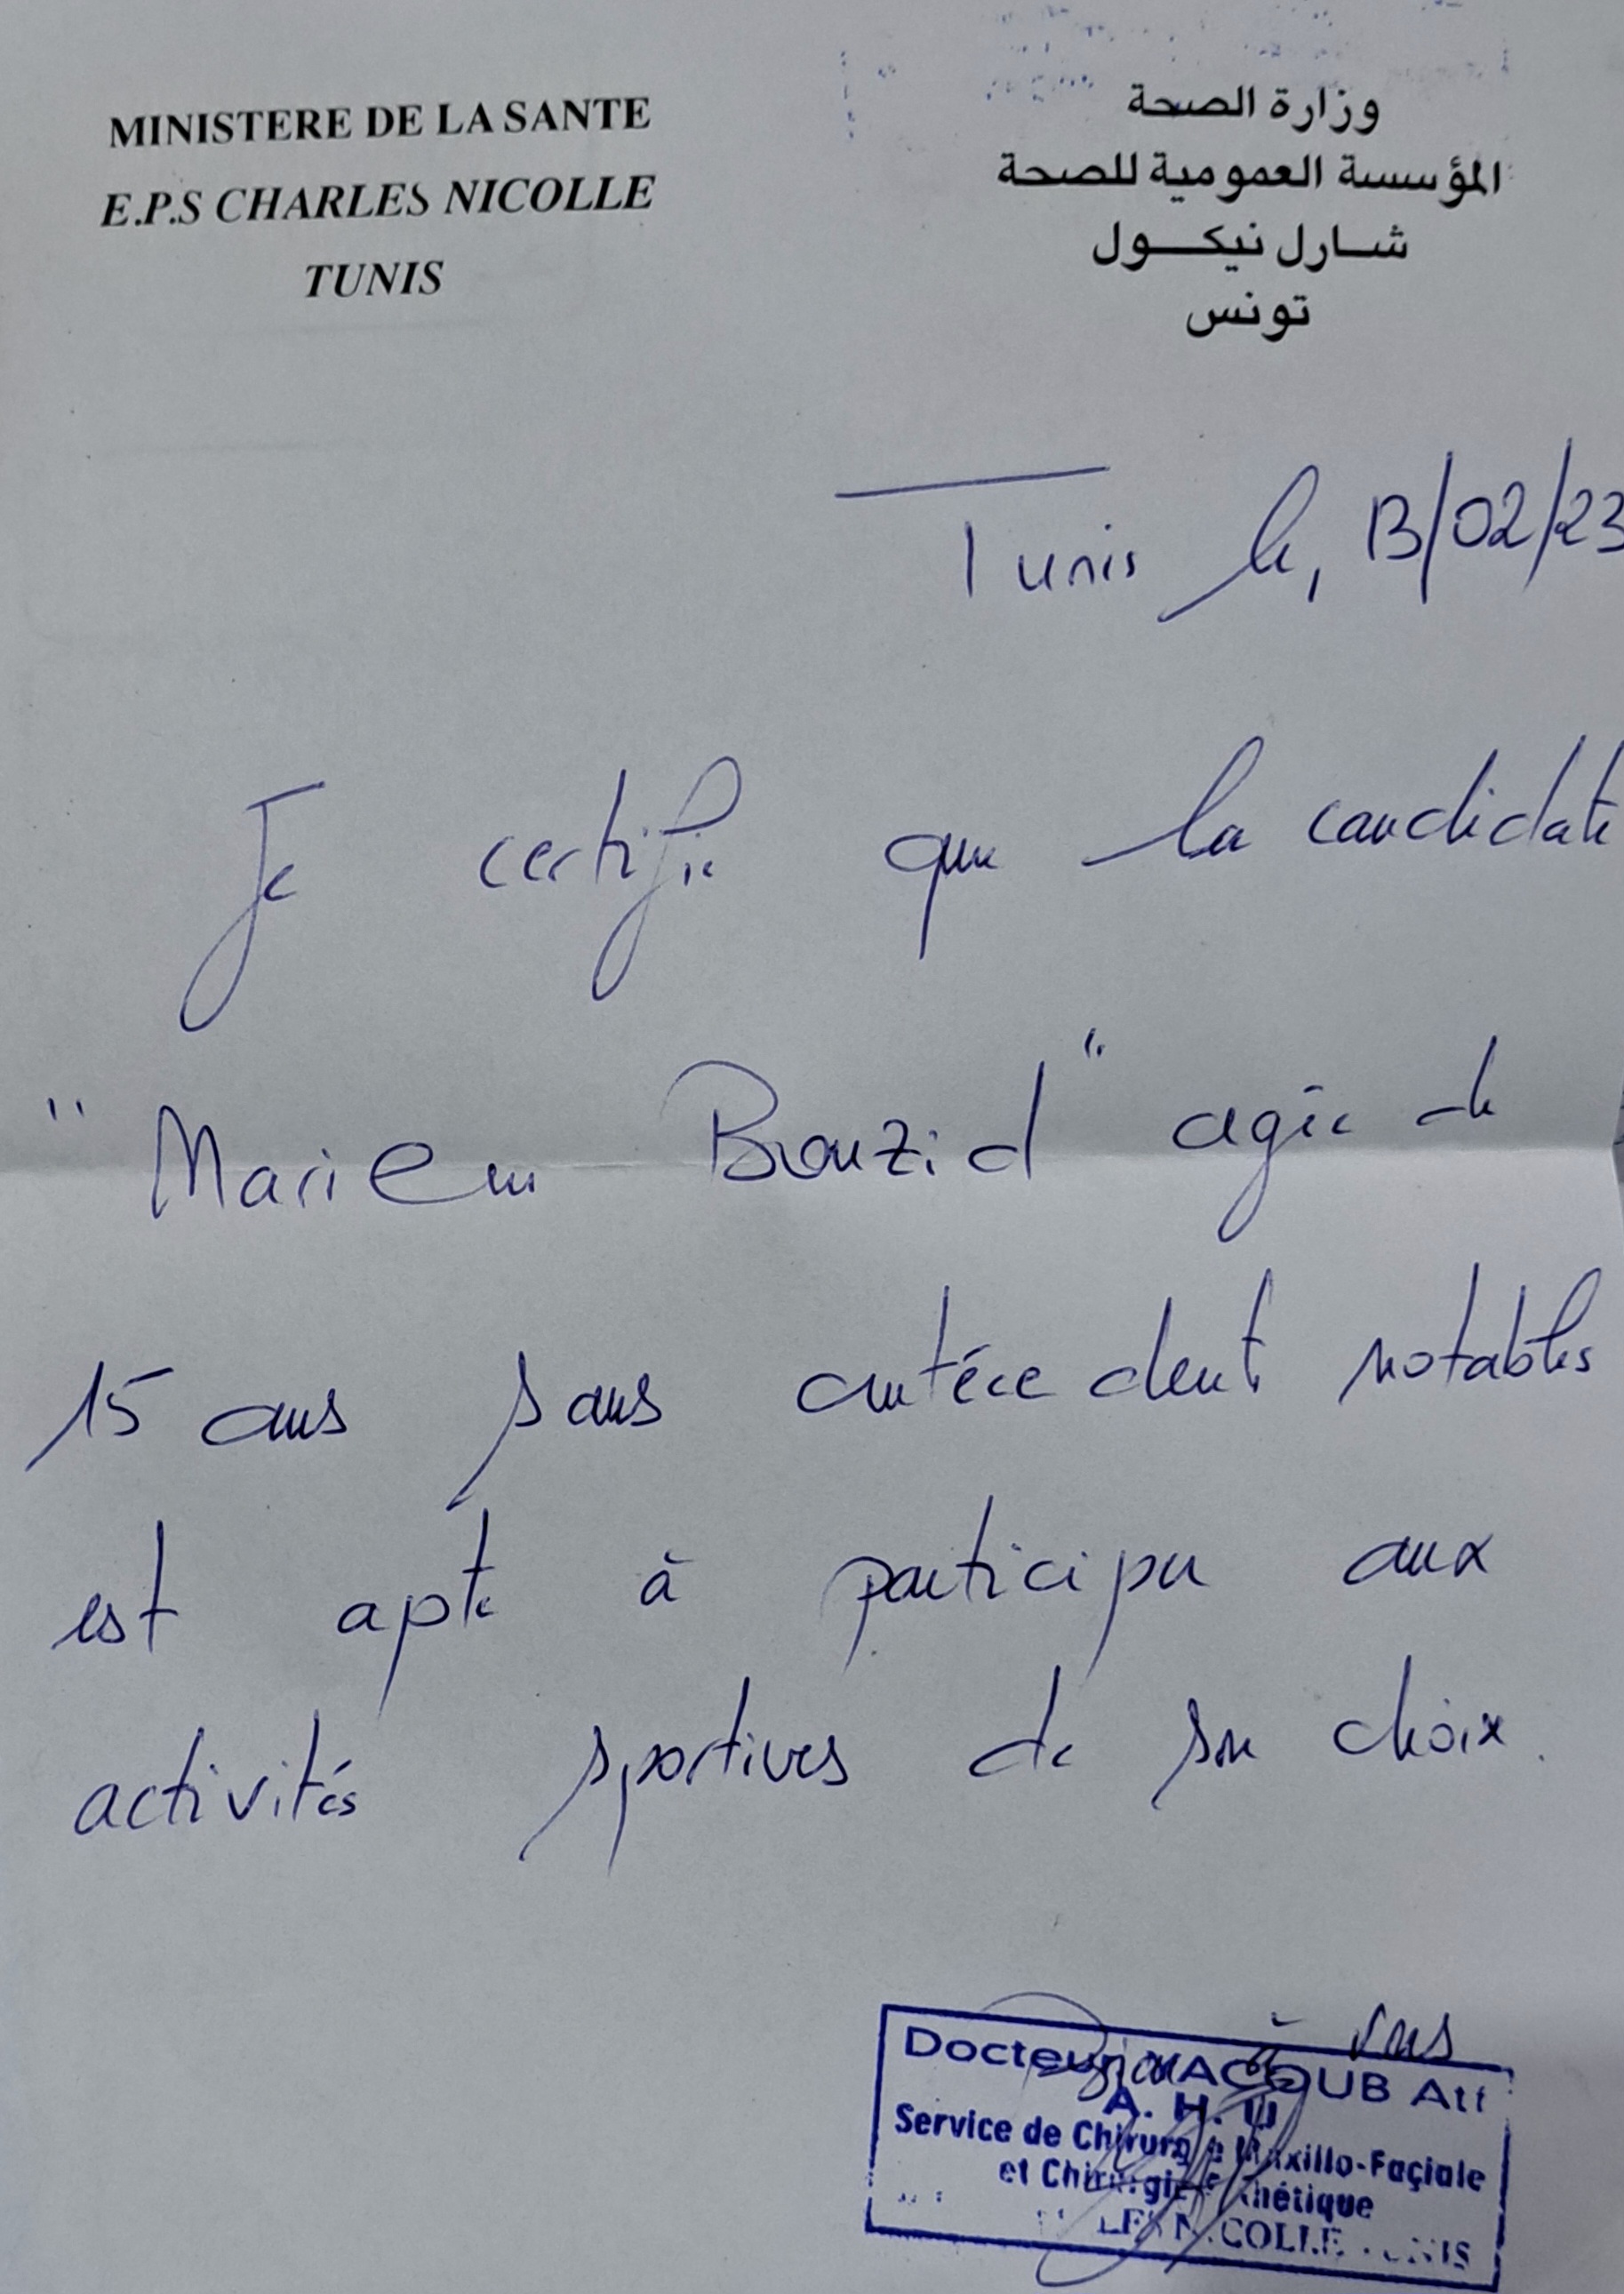 MINISTERE DE LA SANTE
E.P.S CHARLES NICOLLE
TUNIS
وزارة الصحة
المؤسسة العمومية للصحة
شارل نيكول
تونس
Tunis le, 13/02/23
Je certifie que la candidate
"Mariem Bouzid" agée de
15 ans sans antécedent notables
est apte à participer aux
activités sportives de son choix.
Bien à vous
Docteur YACOUB Att
A. H. U
Service de Chirurgie Maxillo-Façiale
et Chirurgie Esthétique
NICOLLE TUNIS